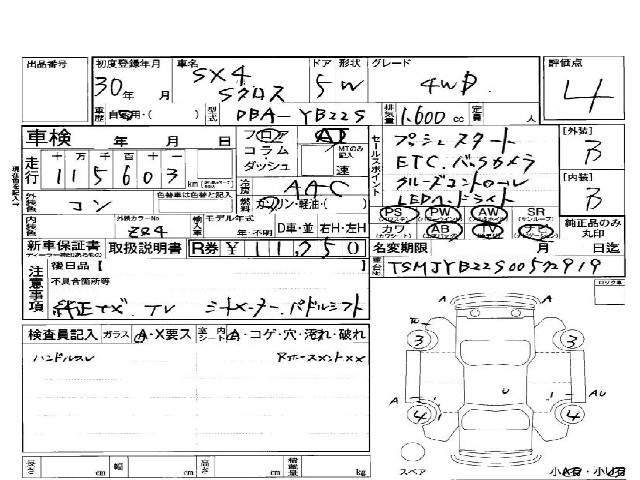 出品番号 初度登録年月 車名 ドア 形状 グレード 評価点
30年 月 SX4 Sクロス 5 W 4WD 4
車歴 自家用・( ) 型式 DBA-YB22S 排気量 1.600 cc 定員 人
車検 年 月 日 フロア AT セールスポイント プッシュスタート [外装] B
走行 十 万 千 百 十 一 コラム MTのみ記入 ETC.バックカメラ
115603 km ダッシュ 速 クルーズコントロール [内装] B
外装色 コン 色替車は色替前色を記入 冷房 AAC LEDヘッドライト
燃料 ガソリン・軽油・( ) PS PW AW SR
内装色 外装カラーNo. ZQ4 輸入車 モデル年式 年・不明 D車・並 右H・左H カワ AB TV ナビ 純正品のみ丸印
新車保証書 取扱説明書 R券 ¥11,750 名変期限 月 日迄
注意事項 後日品【 】 車台No. TSMJYB22S00572919
不具合箇所等
純正ナビ.TV シートヒーター.パドルシフト
ロック車
検査員記入 ガラス A・X要ス 室内シート A・コゲ・穴・汚れ・破れ
ハンドルスレ
3 3
A A AU
U
4 4
スペア A
長さ cm 幅 cm 高さ cm 積載量 kg 小キズ・小凹